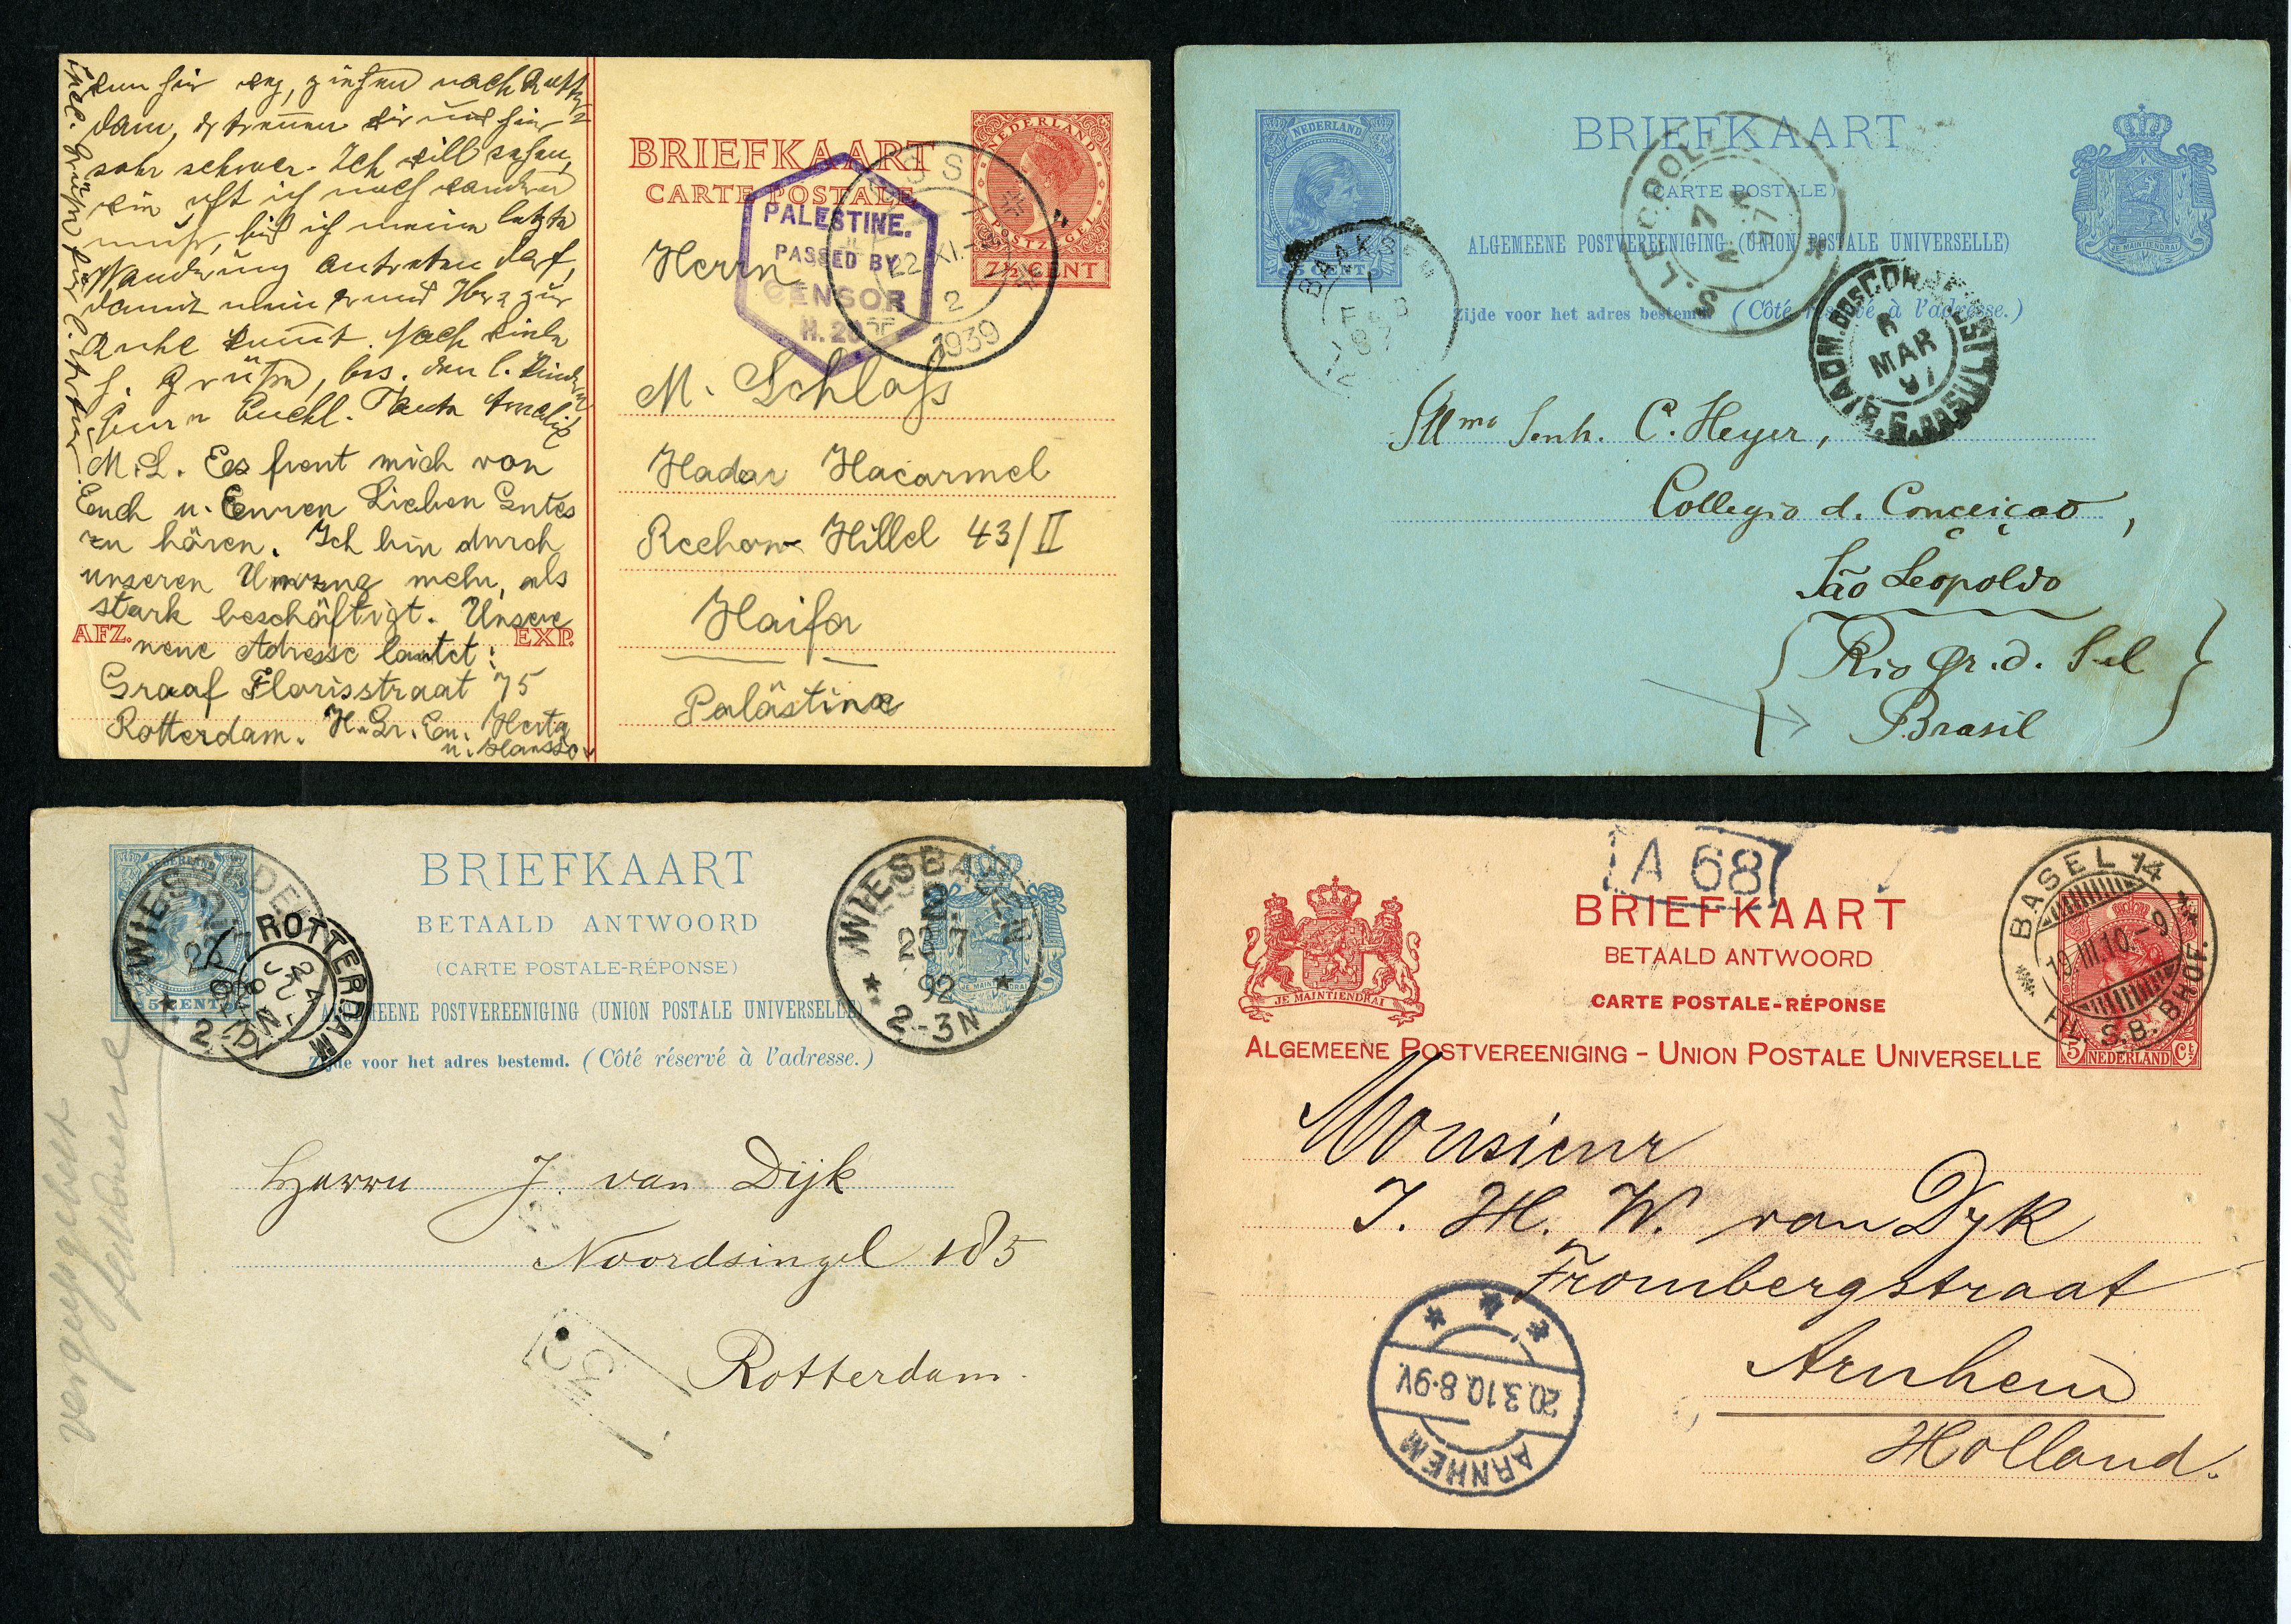 weg, ziehen nach Rotter
dam,
sehr schwer. Ich will sehen,
meine letzte
Wanderung antreten darf,
damit mein Herz zur
Ruhe kommt. Nach
h. Grüße, bes. den l. Kindern
Tante Amalie
M. L. Es freut mich von
Euch u. Euren Lieben Gutes
zu hören. Ich bin durch
unseren Umzug mehr, als
stark beschäftigt. Unsere
AFZ. neue Adresse lautet: EXP.
Graaf Florisstraat 75
Rotterdam. H. Gr. Eu. Herta
u.
BRIEFKAART
CARTE POSTALE
NEDERLAND
POSTZEGEL
7½ CENT
OSS
22 XI
2
1939
PALESTINE.
PASSED BY
CENSOR
Herrn
M. Schloß
Hadar Hacarmel
Rechow Hillel 43/II
Haifa
Palästina
NEDERLAND
5 CENT
BRIEFKAART
(CARTE POSTALE)
ALGEMEENE POSTVEREENIGING (UNION POSTALE UNIVERSELLE)
Zijde voor het adres bestemd. (Côté réservé à l'adresse.)
JE MAINTIENDRAI
BAAKSEM
1
FEB
97
S. LEOPOLDO
7
97
ADM. DOS CORREIOS
6
MAR
97
R. G. DO SUL
Illmo Senh. C. Heyer,
Collegio d. Conceiçao,
São Leopoldo
Rio Gr. d. Sul
Brasil
NEDERLAND
5 CENT
BRIEFKAART
BETAALD ANTWOORD
(CARTE POSTALE-RÉPONSE)
ALGEMEENE POSTVEREENIGING (UNION POSTALE UNIVERSELLE)
Zijde voor het adres bestemd. (Côté réservé à l'adresse.)
JE MAINTIENDRAI
WIESBADEN
WIESBADEN
2.
23 7
92
2-3N
ROTTERDAM
Herrn J. van Dijk
Noordsingel 185
Rotterdam.
A 68
BRIEFKAART
BETAALD ANTWOORD
CARTE POSTALE-RÉPONSE
ALGEMEENE POSTVEREENIGING - UNION POSTALE UNIVERSELLE
JE MAINTIENDRAI
BASEL 14
19.III.10.-9
FIL. S.B. BHOF.
5 NEDERLAND Ct
Monsieur
J. H. W. van Dyk
Frombergstraat
Arnhem
Holland.
ARNHEM
20.3.10.8-9V.